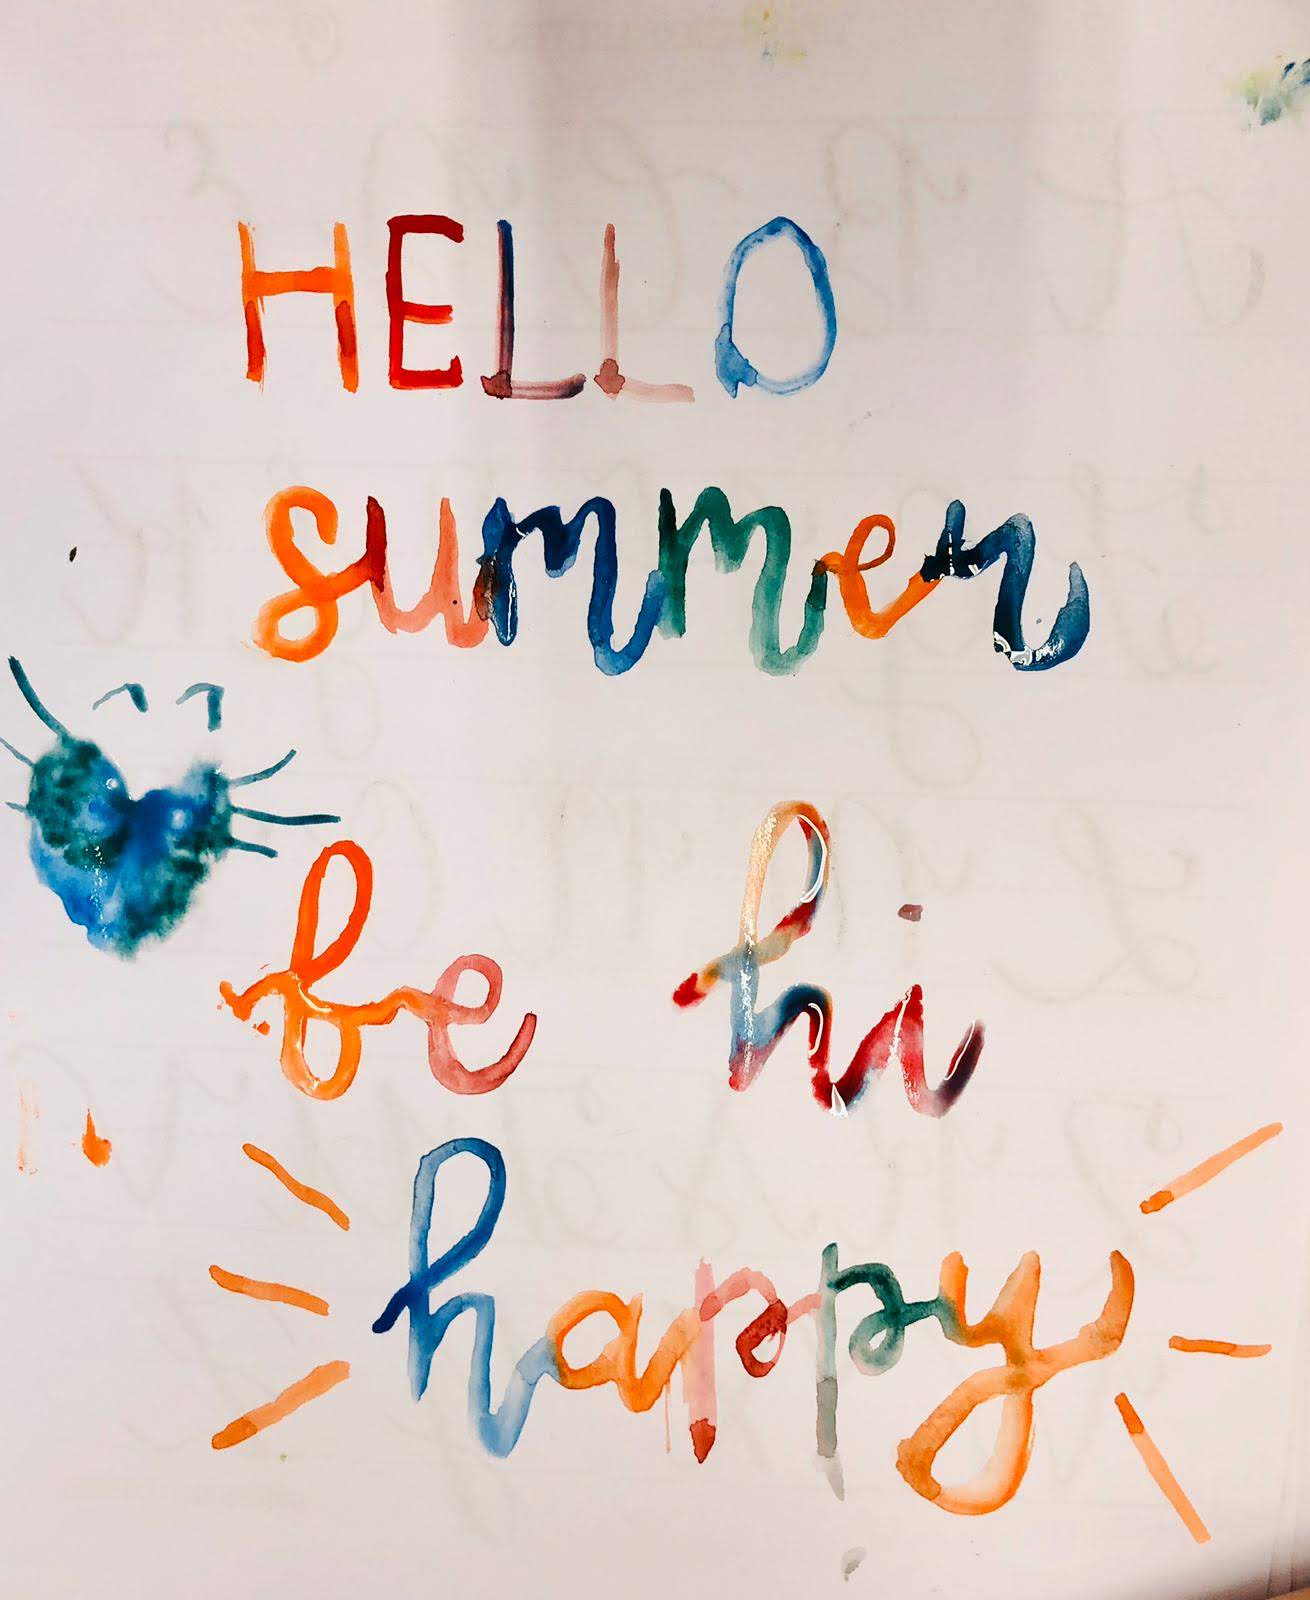 HELLO
summer
be hi
happy